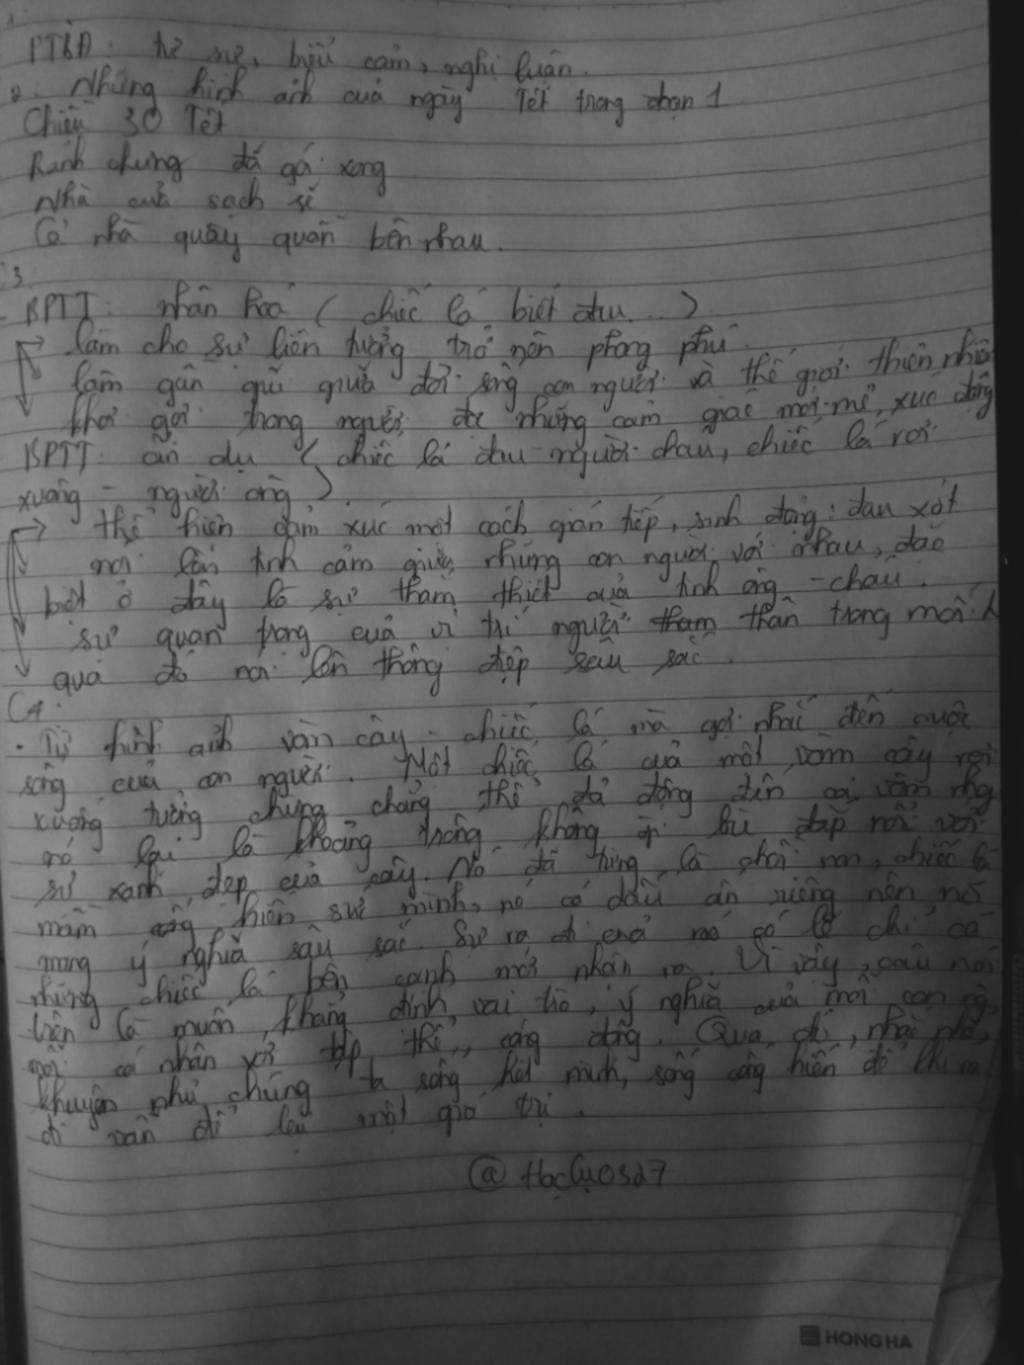 PTBĐ: tự sự, biểu cảm, nghị luận.
2: Những hình ảnh của ngày Tết trong đoạn 1
Chiều 30 Tết
Bánh chưng đã gói xong
Nhà cửa sạch sẽ
Cả nhà quây quần bên nhau.
3
- BPTT: nhân hoá (chiếc lá biết đau...)
→ làm cho sự liên tưởng trở nên phong phú.
làm gần gũi giữa đời sống con người và thế giới thiên nhiên
khơi gợi trong người đọc những cảm giác mới mẻ, xúc động
BPTT: ẩn dụ (chiếc lá đau - người cháu, chiếc lá rơi
xuống - người ông).
→ thể hiện cảm xúc một cách gián tiếp, sinh động: đau xót
nói lên tình cảm giữa những con người với nhau, đặc
biệt ở đây là sự thắm thiết của tình ông - cháu.
sự quan trọng của vị trí người thân trong mỗi
qua đó nói lên thông điệp sâu sắc.
C4:
- Từ hình ảnh vòm cây - chiếc lá mà gợi nhắc đến cuộc
sống của con người. Một chiếc lá của một vòm cây rơi
xuống tưởng chừng chẳng thể đả động đến cả vòm nhg
nó lại là khoảng trống không gì bù đắp nổi với
sự xanh đẹp của cây. Nó đã từng là chồi non, chiếc lá
mầm cống hiến sức mình, nó có dấu ấn riêng nên nó
mang ý nghĩa sâu sắc. Sự ra đi của nó có lẽ chỉ có
những chiếc lá bên cạnh mới nhận ra. Vì vậy, câu nói
trên là muốn khẳng định vai trò, ý nghĩa của mỗi con ng,
mỗi cá nhân với tập thể, cộng đồng. Qua đó, nhắc nhở,
khuyên nhủ chúng ta sống hết mình, sống cống hiến để khi ra
đi vẫn để lại một giá trị.
@ Hoclus027
HONG HA